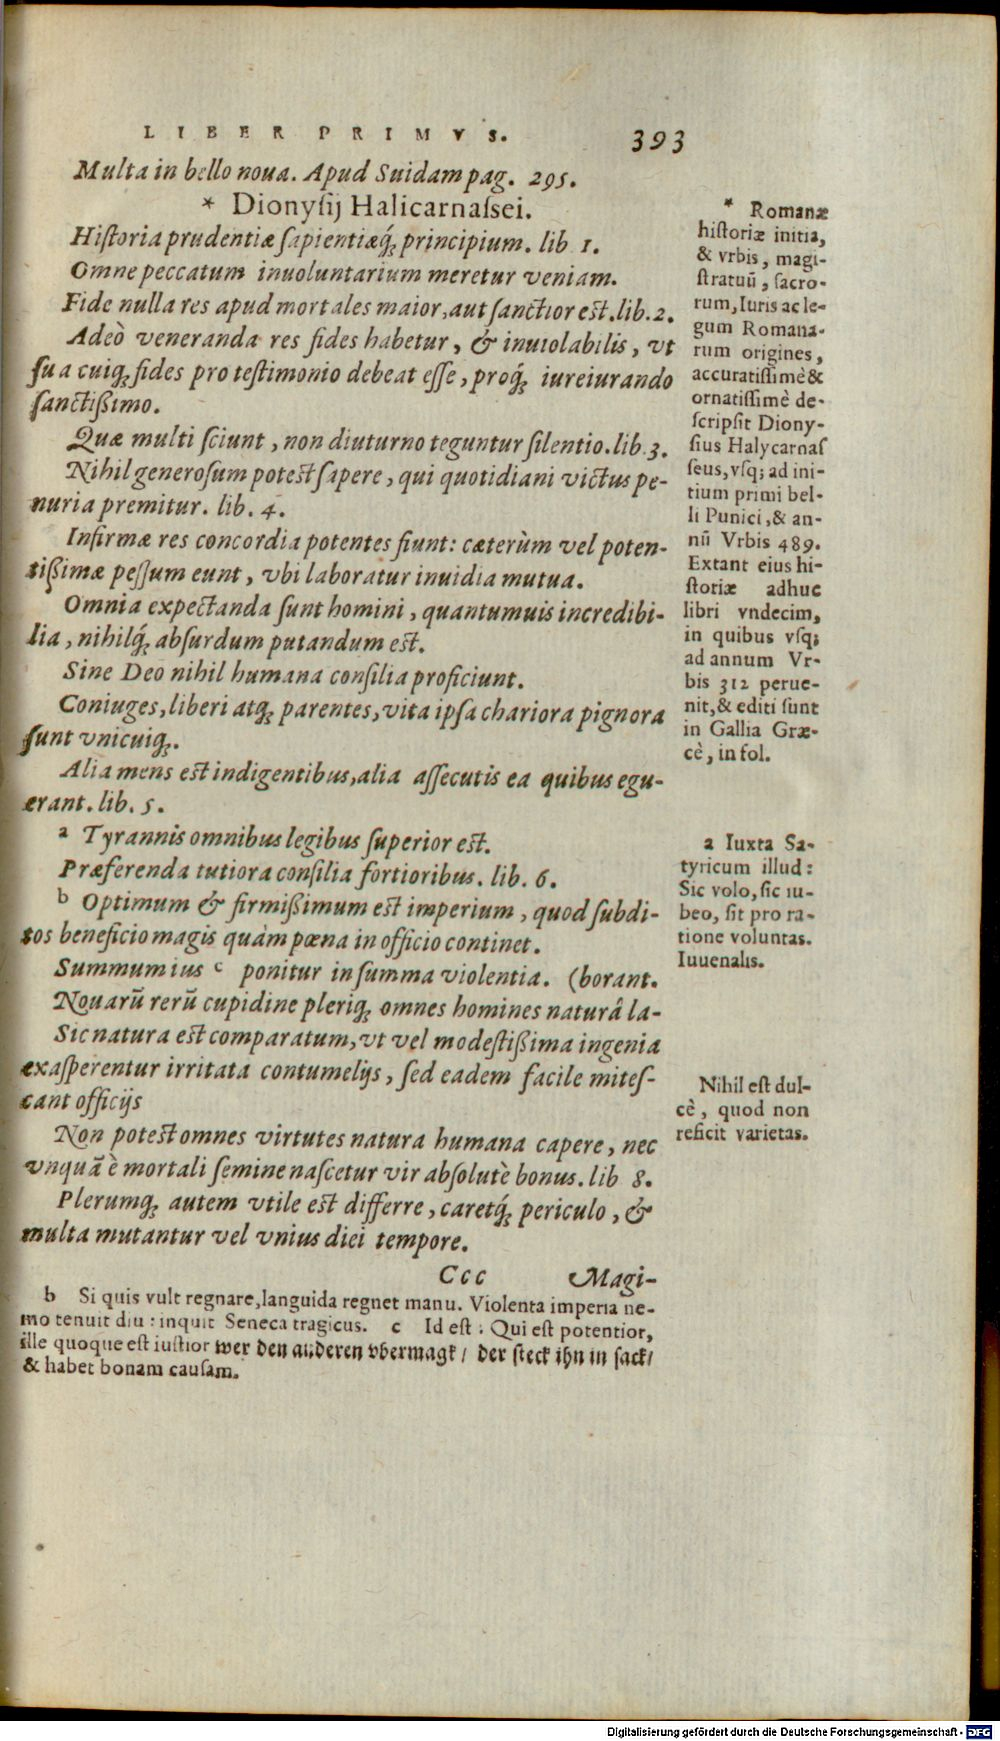 LIBER PRIMVS. 393
Multa in bello noua. Apud Suidam pag. 295.
* Dionyſij Halicarnaſsei.
Hiſtoria prudentiæ ſapientiæq́; principium. lib 1.
Omne peccatum inuoluntarium meretur veniam.
Fide nulla res apud mortales maior, aut ſanctior eſt. lib. 2.
Adeò veneranda res fides habetur, & inuiolabilis, vt
ſua cuiq; fides pro teſtimonio debeat eſſe, proq́; iureiurando
ſanctißimo.
Quæ multi ſciunt, non diuturno teguntur ſilentio. lib. 3.
Nihil generoſum poteſt ſapere, qui quotidiani victus pe-
nuria premitur. lib. 4.
Infirmæ res concordia potentes fiunt: cæterùm vel poten-
tißimæ peſſum eunt, vbi laboratur inuidia mutua.
Omnia expectanda ſunt homini, quantumuis incredibi-
lia, nihilq́; abſurdum putandum eſt.
Sine Deo nihil humana conſilia proficiunt.
Coniuges, liberi atq; parentes, vita ipſa chariora pignora
ſunt vnicuiq;.
Alia mens eſt indigentibus, alia aſſecutis ea quibus egu-
erant. lib. 5.
a Tyrannis omnibus legibus ſuperior eſt.
Præferenda tutiora conſilia fortioribus. lib. 6.
b Optimum & firmißimum eſt imperium, quod ſubdi-
tos beneficio magis quàm pœna in officio continet.
Summum ius c ponitur in ſumma violentia. (borant.
Nouarū rerū cupidine pleriq; omnes homines naturâ la-
Sic natura eſt comparatum, vt vel modeſtißima ingenia
exaſperentur irritata contumelijs, ſed eadem facile miteſ-
cant officijs
Non poteſt omnes virtutes natura humana capere, nec
vnquā è mortali ſemine naſcetur vir abſolutè bonus. lib 8.
Plerumq; autem vtile eſt differre, caretq́; periculo, &
multa mutantur vel vnius diei tempore.
Ccc Magi-
* Romanæ
hiſtoriæ initia,
& vrbis, magi-
ſtratuū, ſacro-
rum, Iuris ac le-
gum Romana-
rum origines,
accuratiſſimè &
ornatiſſimè de-
ſcripſit Diony-
ſius Halycarnaſ
ſeus, vſq; ad ini-
tium primi bel-
li Punici, & an-
nū Vrbis 489.
Extant eius hi-
ſtoriæ adhuc
libri vndecim,
in quibus vſq;
ad annum Vr-
bis 312 perue-
nit, & editi ſunt
in Gallia Græ-
cè, in fol.
a Iuxta Sa-
tyricum illud:
Sic volo, ſic iu-
beo, ſit pro ra-
tione voluntas.
Iuuenalis.
Nihil eſt dul-
cè, quod non
reficit varietas.
b Si quis vult regnare, languida regnet manu. Violenta imperia ne-
mo tenuit diu: inquit Seneca tragicus. c Id eſt: Qui eſt potentior,
ille quoque eſt iuſtior wer den anderen vbermagk / der ſteck ihn in ſack /
& habet bonam cauſam.
Digitalisierung gefördert durch die Deutsche Forschungsgemeinschaft - DFG